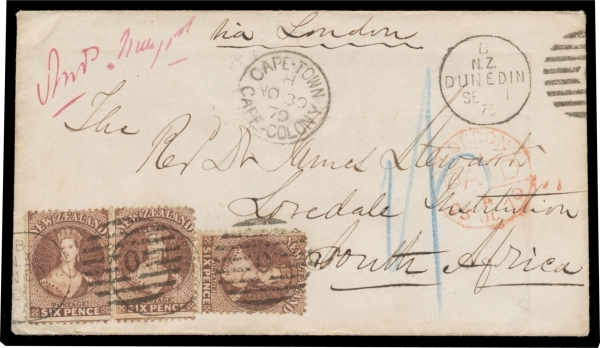 via London
CAPE-TOWN
H
NO 30
70
CAPE-COLONY
B
N.Z.
DUNEDIN
SE 1
The
Revd Dr James Stewart
Lovedale Institution
South Africa
LONDON
NEW ZEALAND
SIX PENCE
NEW ZEALAND
SIX PENCE
NEW ZEALAND
SIX PENCE